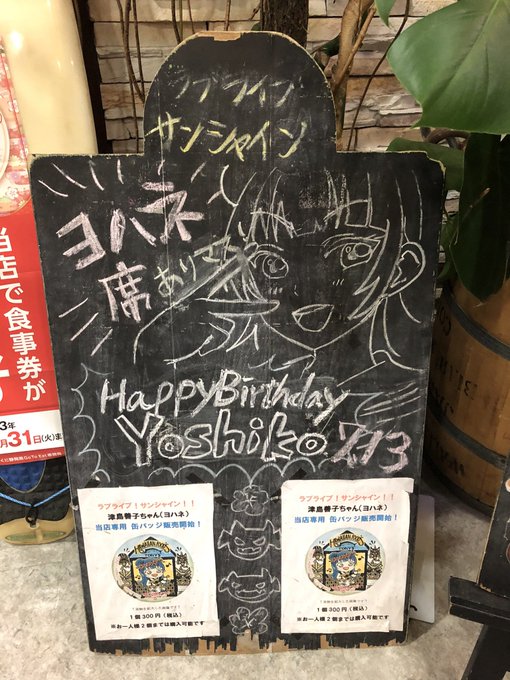 ラブライブ
サンシャイン
ヨハネ
席あります
Happy Birthday
Yoshiko 7.13
ラブライブ！サンシャイン！！
津島善子ちゃん（ヨハネ）
当店専用 缶バッジ販売開始！
1個300円（税込）
※お一人様2個までは購入可能です
ラブライブ！サンシャイン！！
津島善子ちゃん（ヨハネ）
当店専用 缶バッジ販売開始！
1個300円（税込）
※お一人様2個までは購入可能です
当店で食事券が
3年
月31日(火)ま